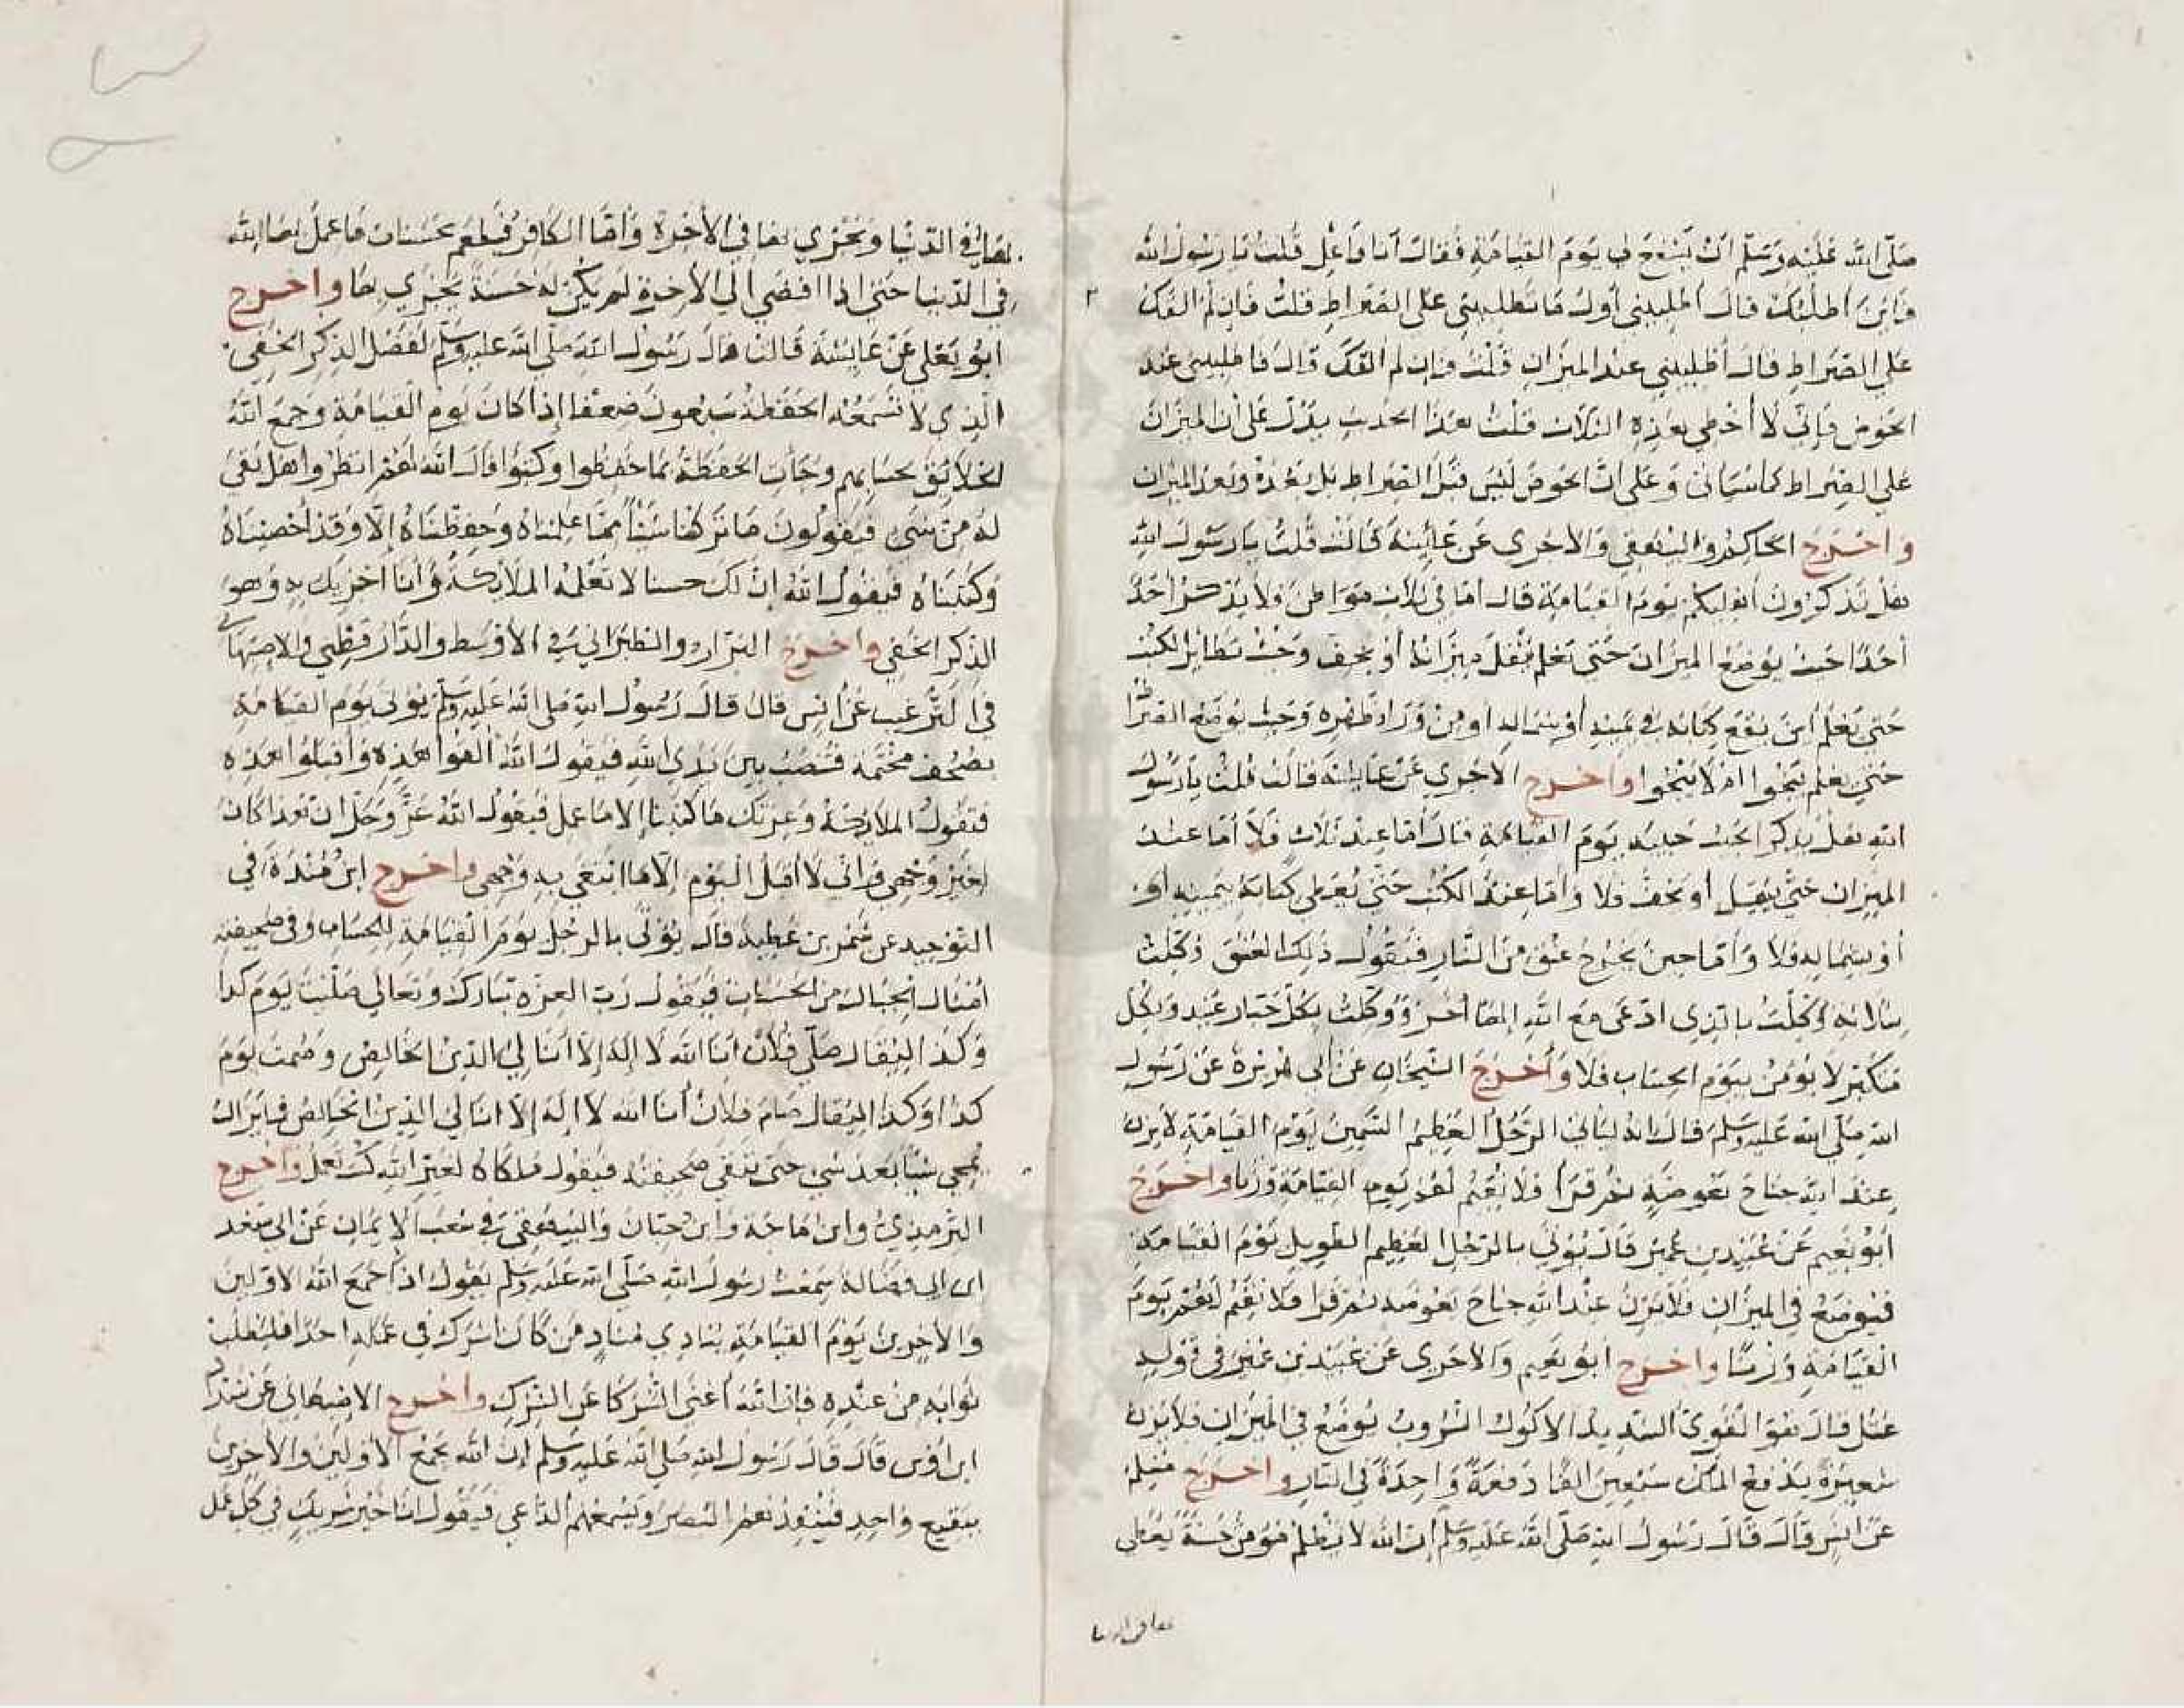 صلى الله عليه وسلم ان يشفع لي يوم القيامة فقال انا فاعل قلت يا رسول الله
فاين اطلبك قال اطلبني اول ما تطلبني على الصراط قلت فان لم القك
علي الصراط قال اطلبني عند الميزان قلت فان لم القك قال فاطلبني عند
الحوض فاني لا أخطي هذه الثلاث قلت هذا الحديث يدل على ان الميزان
علي الصراط كما سياتي وعلى ان الحوض ليس قبل الصراط بل بعده وبعد الميزان
واخرج الحاكم والبيهقي والاجري عن عائشة قالت قلت يا رسول الله
هل تذكرون أهليكم يوم القيامة قال اما في ثلاث مواطن فلا يذكر احد
أحدا حيث يوضع الميزان حتى تعلم يثقل ميزانه أو يخف وحيث تطاير الكتب
حتى تعلم اين يقع كتابه في يمينه أو شماله او من وراء ظهره وحيث يوضع الصراط
حتى يعلم ينجوا ام لا ينجوا واخرج الاجري عن عايشة قالت قلت يا رسول
الله هل يذكر الحبيب حبيبه يوم القيامة قال أما عند ثلاث فلا أما عند
الميزان حتى يثقل أو يخف فلا وأما عند الكتب حتى يعطى كتابه بيمينه أو
أو بشماله فلا وأما حين يخرج عنق من النار فيقول ذلك العنق وكلت
بثلاثة وكلت بالذي ادعى مع الله إلها أخر ووكلت بكل جبار عنيد وبكل
متكبر لا يؤمن بيوم الحساب فلا وأخرج الشيخان عن أبي هريرة عن رسول
الله صلى الله عليه وسلم قال انه ليأتي الرجل العظيم السمين يوم القيامة لا يزن
عند الله جناح بعوضة ثم قرأ فلا نقيم لهم يوم القيامة وزنا واخرج
أبو نعيم عن عبيد بن عمير قال يؤتى بالرجل العظيم الطويل يوم القيامة
فيوضع في الميزان فلا يزن عند الله جناح بعوضة ثم قرأ فلا نقيم لهم يوم
القيامة وزنا واخرج أبو نعيم والاجري عن عبيد بن عمير في قوله
عتل قال هو القوي الشديد الاكول الشروب يوضع في الميزان فلا يزن
شعيرة يدفع الملك سبعين الفا دفعة واحدة في النار واخرج مسلم
عن انس قال قال رسول الله صلى الله عليه وسلم إن الله لا يظلم مؤمن حسنة يعطي
بها في الدنيا ويجزي بها في الأخرة وأما الكافر فيطعم بحسنات ما عمل بها لله
في الدنيا حتى اذا افضى الي الأخرة لم يكن له حسنة يجزي بها واخرج
ابو يعلى عن عايشة قالت قال رسول الله صلى الله عليه وسلم لفضل الذكر الخفي
الذي لا تسمعه الحفظة سبعون ضعفا إذا كان يوم القيامة وجمع الله
الخلائق بحسابهم وجات الحفظة بما حفظوا وكتبوا قال الله لهم انظروا هل بقي
له من شيء فيقولون ما تركنا شيئا مما علمناه وحفظناه إلا وقد أحصيناه
وكتبناه فيقول الله إن لك حسنا لا تعلمه الملائكة وأنا اخزيك به وهو
الذكر الخفي واخرج البزار والطبراني في الأوسط والدار قطني والاصبهاني
في الترغيب عن انس قال قال رسول الله صلى الله عليه وسلم يؤتى يوم القيامة
بصحف مختمة فتنصب بين يدي الله فيقول الله القوا هذه واقبلوا هذه
فتقول الملائكة وعزتك ما كتبنا إلا ما عمل فيقول الله عز وجل ان هذا كان
لغير وجهي واني لا أقبل اليوم إلا ما ابتغي به وجهي واخرج ابن منده في
التوحيد عن شمر بن عطية قال يؤتى بالرجل يوم القيامة للحساب وفي صحيفته
أمثال الجبال من الحسنات فيقول رب العزة تبارك وتعالى صليت يوم كذا
وكذا ليقال صلى فلان أنا الله لا إله إلا أنا لي الدين الخالص وصمت يوم
كذا وكذا ليقال صام فلان أنا الله لا إله إلا انا لي الدين الخالص فما يزال
يمحي شيئا بعد شي حتى تبقى صحيفته فيقول ملكاه لغير الله كنت تعمل واخرج
الترمذي وابن ماجة وابن حبان والبيهقي في شعب الإيمان عن ابي سعد
ابن ابي فضالة سمعت رسول الله صلى الله عليه وسلم يقول اذا جمع الله الاولين
والأخرين يوم القيامة ينادي مناد من كان أشرك في عمله احدا فليطلب
ثوابه من عنده فإن الله أغنى الشركا عن الشرك وأخرج الاصبهاني عن شداد
ابن اوس قال قال رسول الله صلى الله عليه وسلم إن الله يجمع الأولين والأخرين
ببقيع واحد فينفذهم البصر ويسمعهم الداعي فيقول انا خير شريك في كل عمل
بها في الدنيا